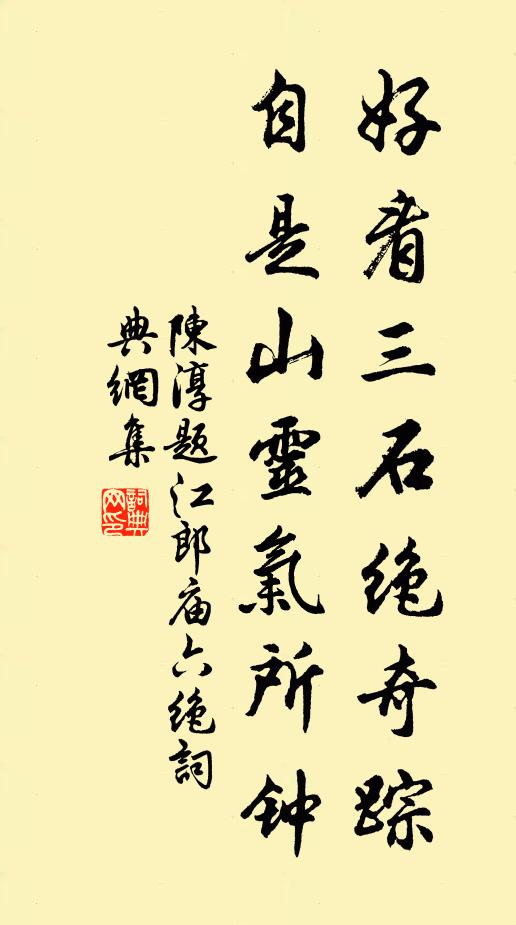 好看三石绝奇踪
自是山靈氣所钟
陳淳题江郎庙六绝詞
典網集
詞典网印